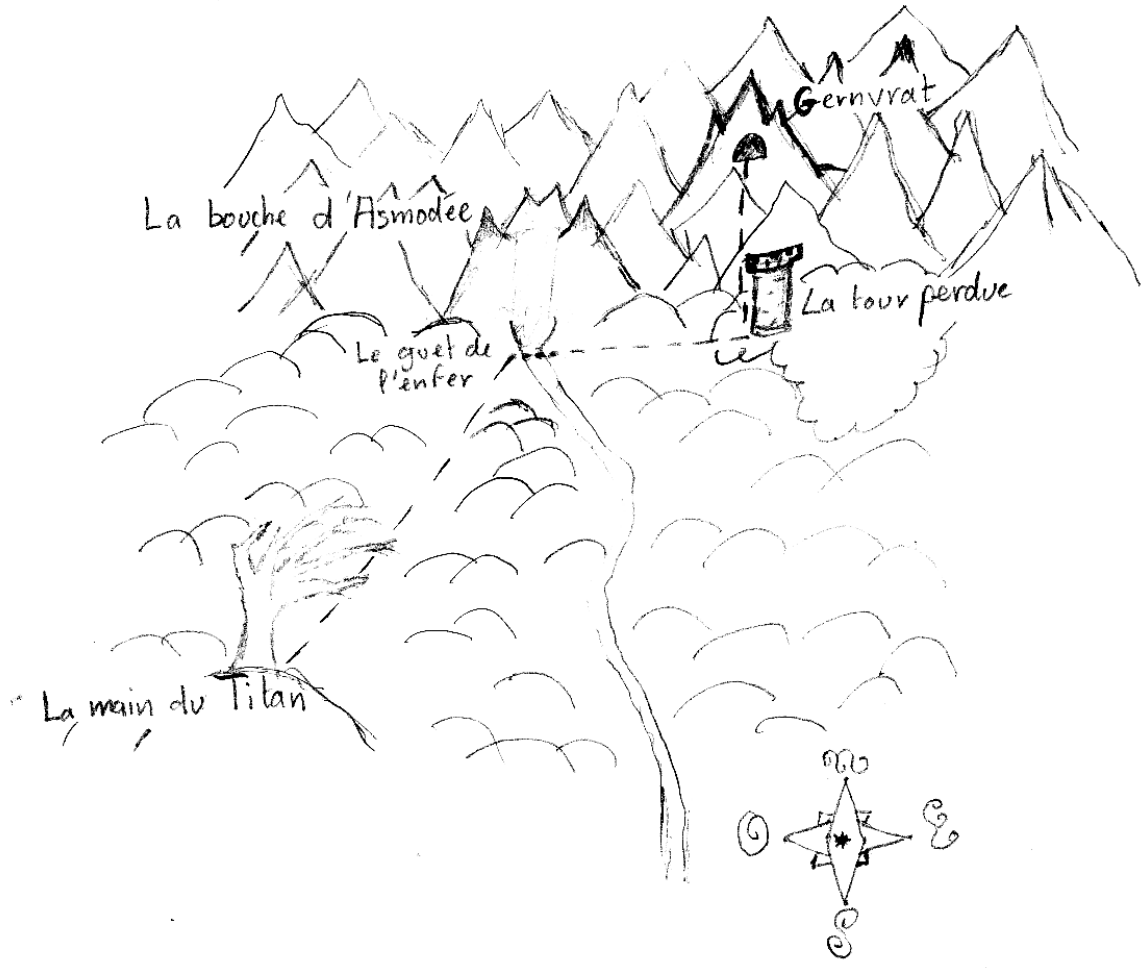 Gernvrat
La bouche d'Asmodée
La tour perdue
Le guet de
l'enfer
La main du Titan
N
O
E
S